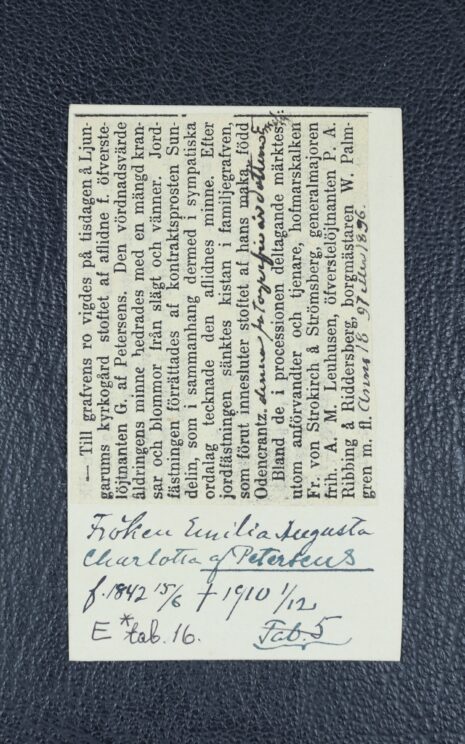 — Till grafvens ro vigdes på tisdagen å Ljun-
garums kyrkogård stoftet af aflidne f. öfverste-
löjtnanten G. af Petersens. Den vördnadsvärde
åldringens minne hedrades med en mängd kran-
sar och blommor från slägt och vänner. Jord-
fästningen förrättades af kontraktsprosten Sun-
delin, som i sammanhang dermed i sympatiska
ordalag tecknade den aflidnes minne. Efter
jordfästningen sänktes kistan i familjegrafven,
som förut innesluter stoftet af hans maka, född
Odencrantz. denna fotografi är dottern E
Bland de i processionen deltagande märktes,
utom anförvandter och tjenare, hofmarskalken
Fr. von Strokirch å Strömsberg, generalmajoren
frih. A. M. Leuhusen, öfverstelöjtnanten P. A.
Ribbing å Riddersberg, borgmästaren W. Palm-
gren m. fl. Anno 18 1896.
Fröken Emilia Augusta
Charlotta af Petersens
f. 1842 15/6 † 1910 1/12
E * tab. 16. Tab. 5